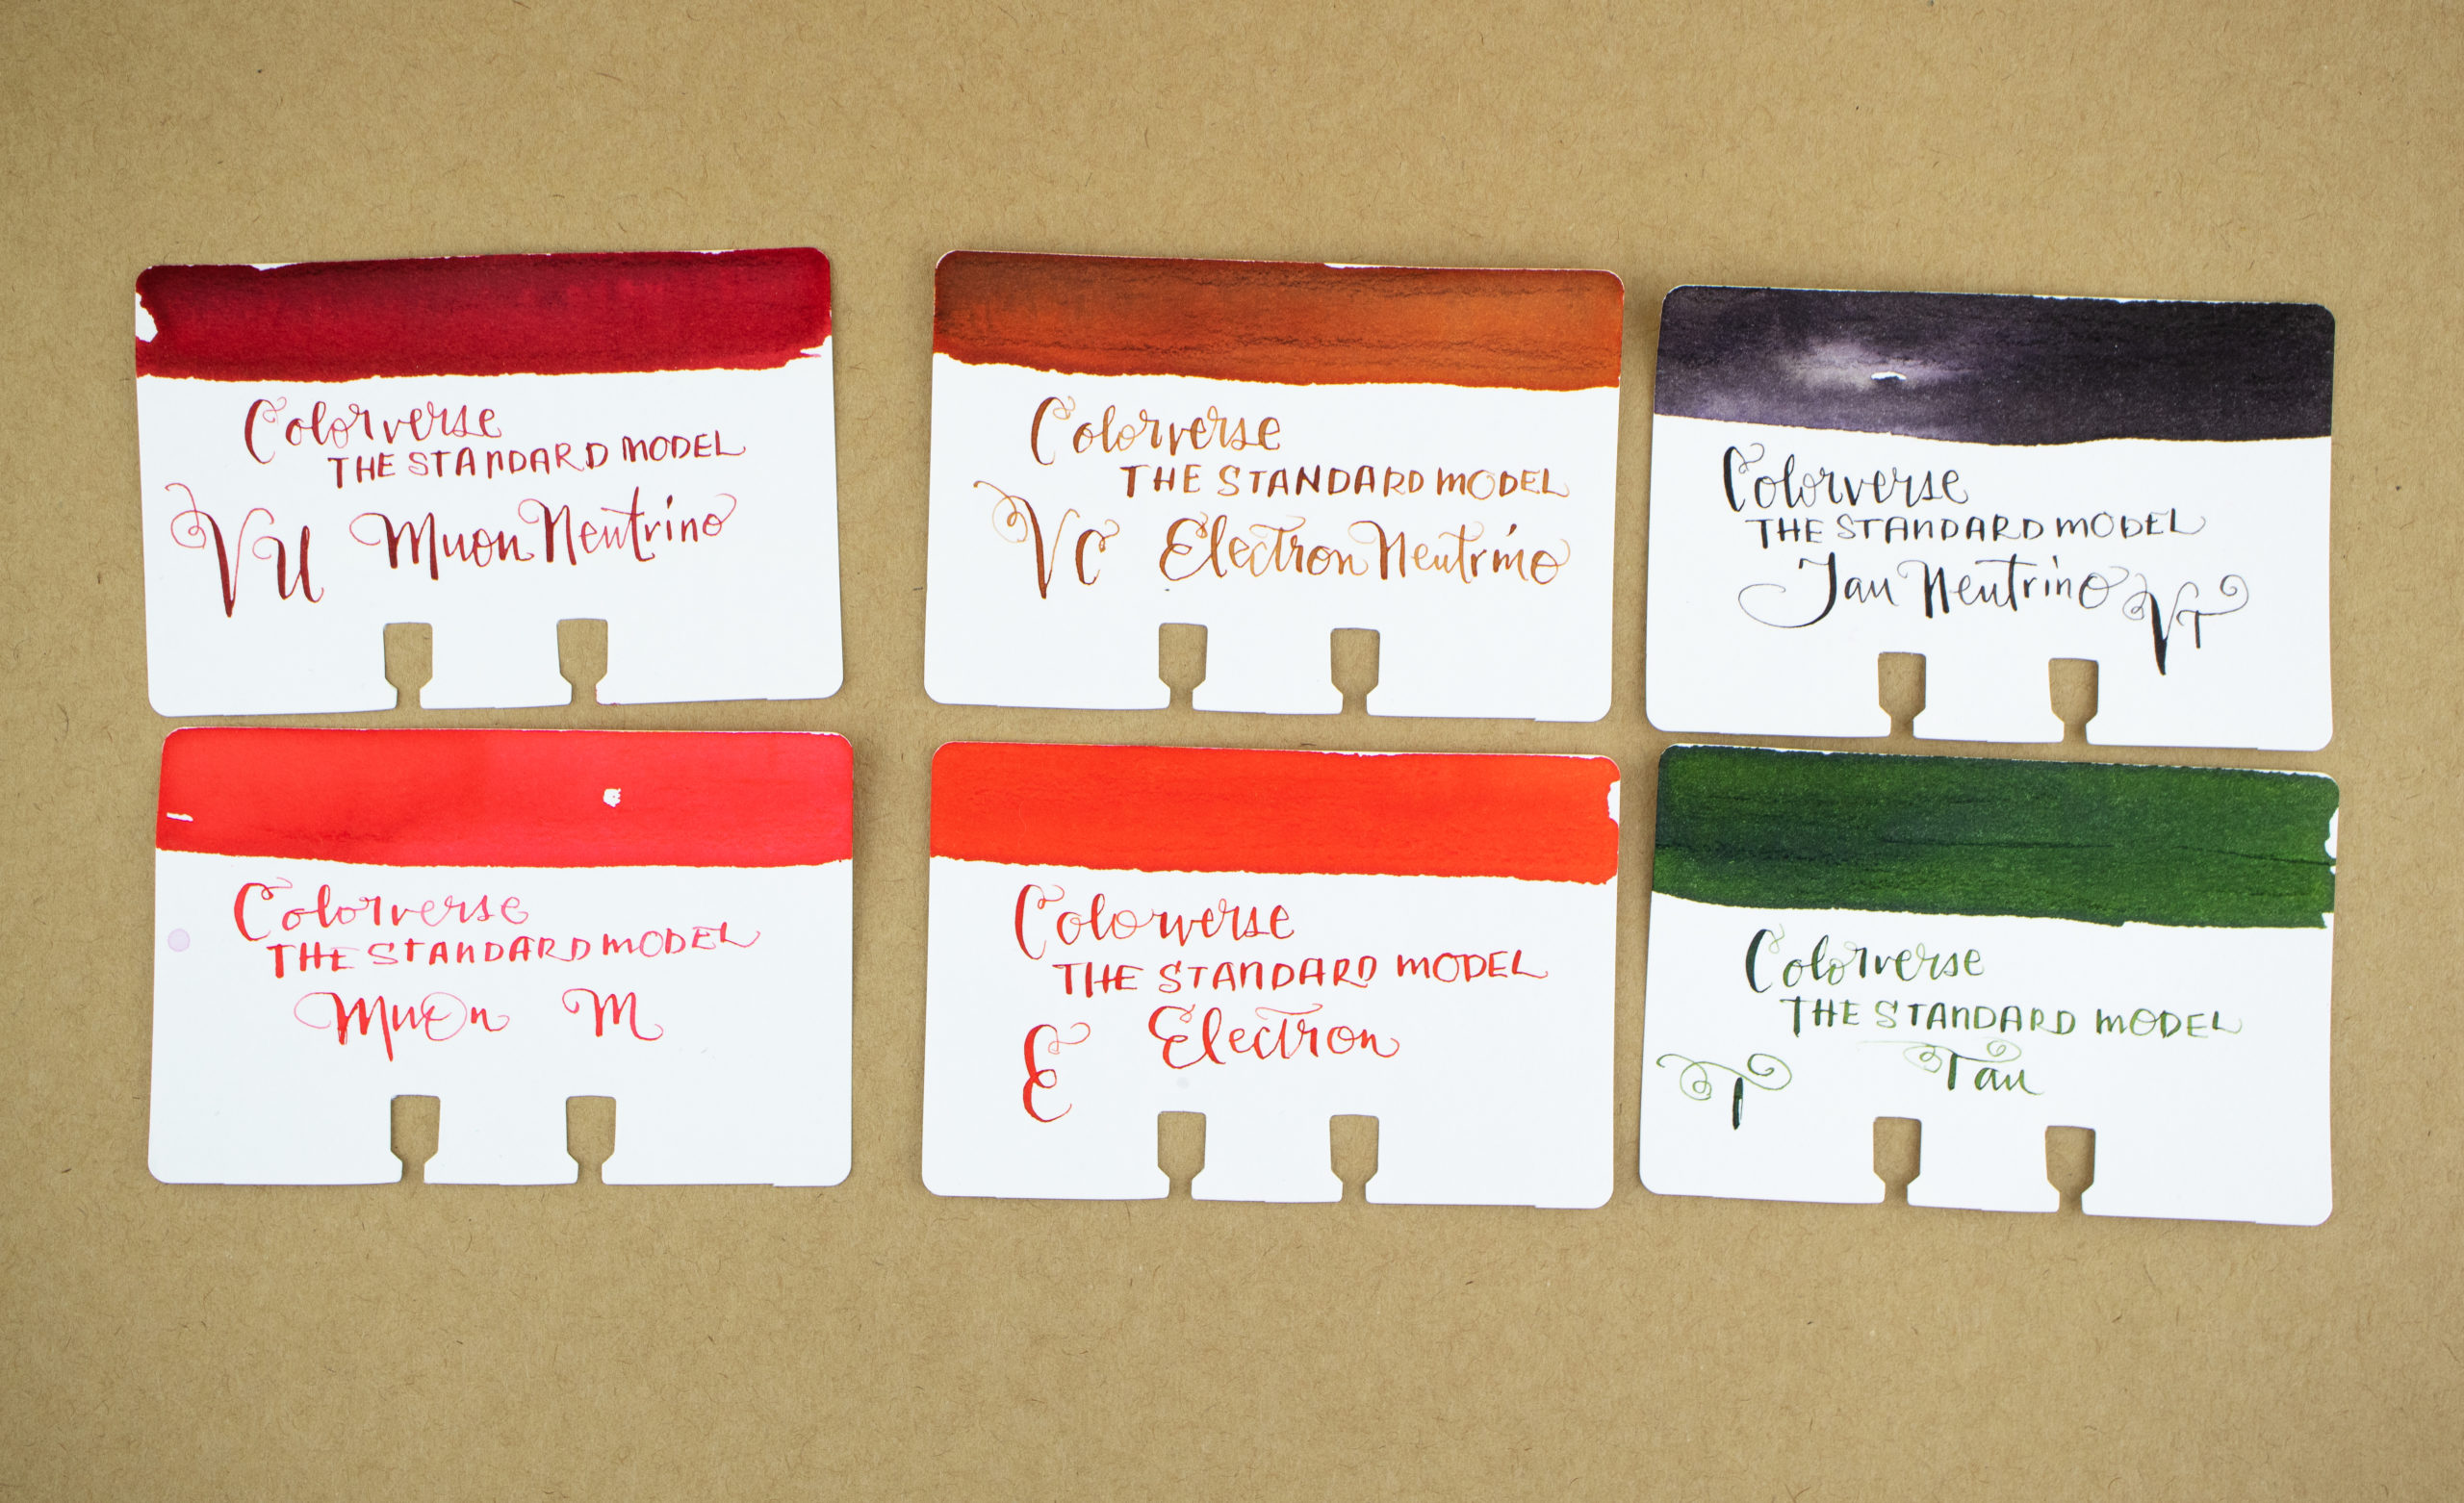 Colorverse
THE STANDARD MODEL
VU Muon Neutrino
Colorverse
THE STANDARD MODEL
VC Electron Neutrino
Colorverse
THE STANDARD MODEL
Tau Neutrino VT
Colorverse
THE STANDARD MODEL
Muon M
Colorverse
THE STANDARD MODEL
E Electron
Colorverse
THE STANDARD MODEL
T Tau